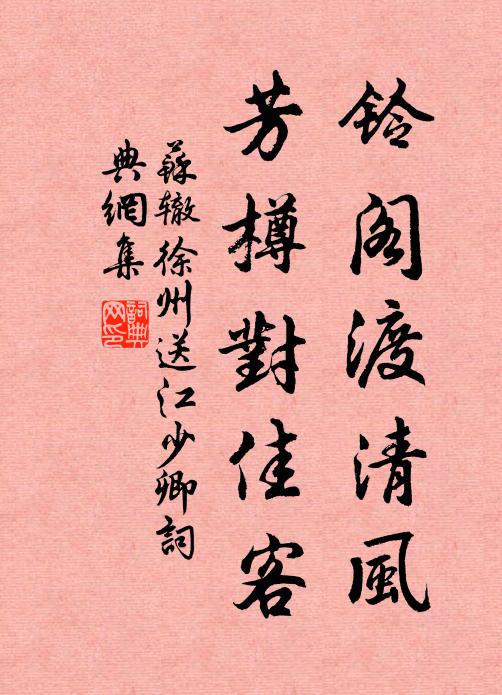 鈴阁渡清風
芳樽對佳客
蘇辙徐州送江少卿詞
典網集
詞典网印